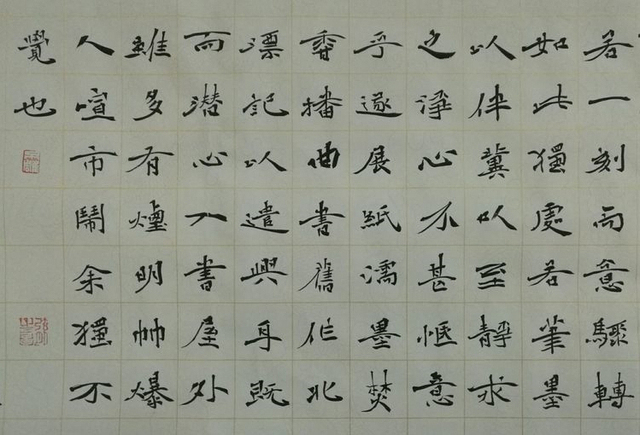 若一刻而意驟轉
如此獨處若筆墨
以伴冀以至靜求
之淨心不甚愜意
乎遂展紙濡墨焚
香播曲書舊作北
漂記以遣興耳既
而潜心入書屋外
雖多有煙明爆
人喧市鬧余獨不
覺也